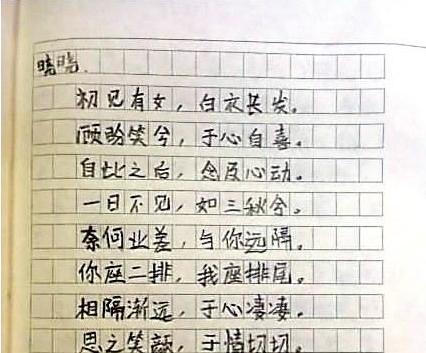 晓晓.
初见有女，白衣长发。
顾盼笑兮，于心自喜。
自此之后，念及心动。
一日不见，如三秋兮。
奈何业差，与你远隔。
你座二排，我座排尾。
相隔渐远，于心凄凄。
思之笑颜，于情切切。